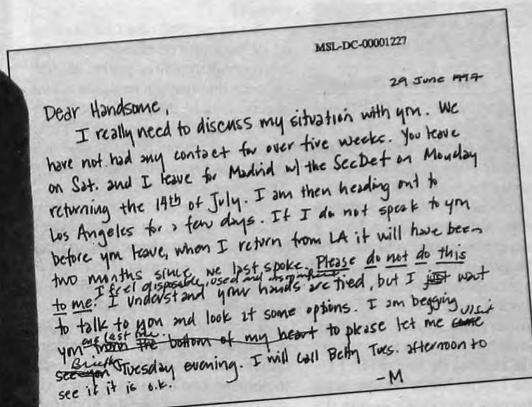 MSL-DC-00001227
29 June 1997
Dear Handsome,
I really need to discuss my situation with you. We
have not had any contact for over five weeks. You leave
on Sat. and I leave for Madrid w/ the SecDef on Monday
returning the 14th of July. I am then heading out to
Los Angeles for a few days. If I do not speak to you
before you leave, when I return from LA it will have been
two months since we last spoke. Please do not do this
I feel disposable, used and insignificant.
to me. I understand your hands are tied, but I just want
to talk to you and look at some options. I am begging
you one last time from the bottom of my heart to please let me come visit
see you Briefly Tuesday evening. I will call Betty Tues. afternoon to
see if it is o.k.
-M